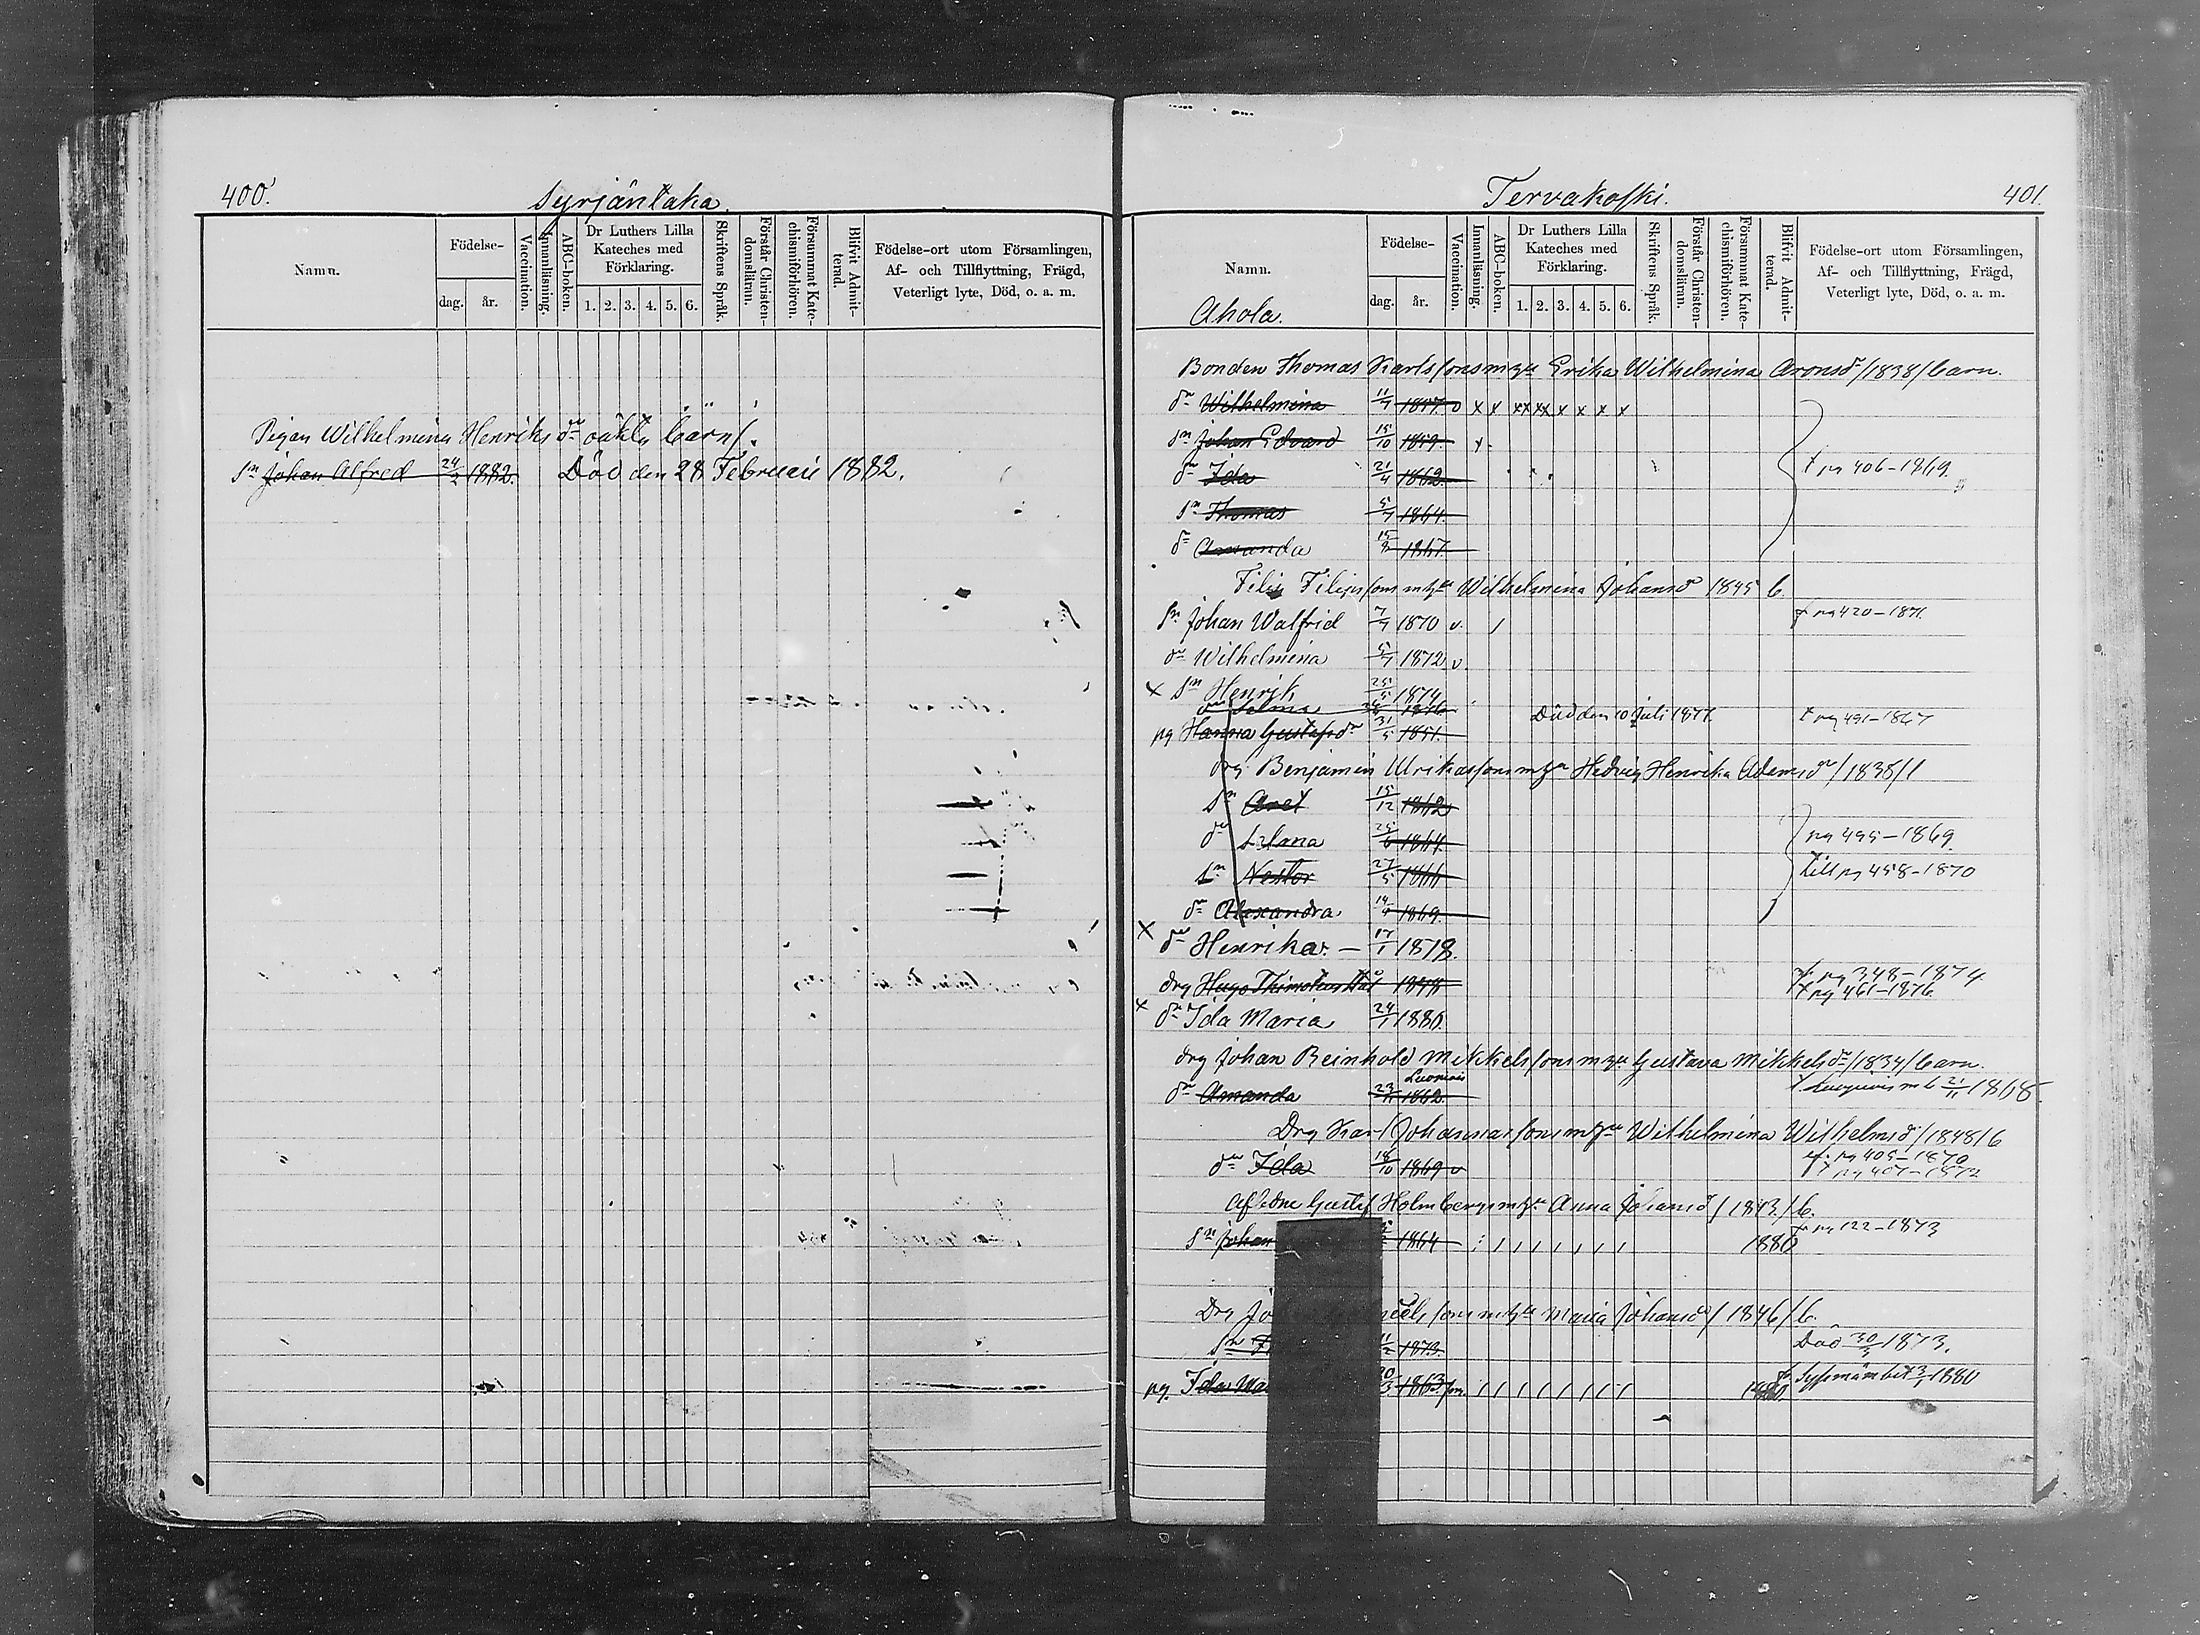 400.
Syrjäntaka.
Namn.
Födelse-
dag. år.
Vaccination.
Innanläsning.
ABC-boken.
Dr Luthers Lilla Kateches med Förklaring.
1. 2. 3. 4. 5. 6.
Skriftens Språk.
Förstår Christendomsläran.
Försummat Katechismiförhören.
Blifvit Admitterad.
Födelse-ort utom Församlingen,
Af- och Tillflyttning, Frägd,
Veterligt lyte, Död, o. a. m.
Pigan Wilhelmina Henriks dr oäkta barn/.
Sn Johan Alfred 24/2 1882. Död den 28 Februari 1882.
Tervakoski.
401.
Namn.
Ahola.
Födelse-
dag. år.
Vaccination.
Innanläsning.
ABC-boken.
Dr Luthers Lilla Kateches med Förklaring.
1. 2. 3. 4. 5. 6.
Skriftens Språk.
Förstår Christendomsläran.
Försummat Katechismiförhören.
Blifvit Admitterad.
Födelse-ort utom Församlingen,
Af- och Tillflyttning, Frägd,
Veterligt lyte, Död, o. a. m.
Bonden Thomas Karlssons m hu Erika Wilhelmina Aronsdr /1838/ barn.
dr Wilhelmina 11/7 1857 v x x xx xx x x x x
Sn Johan Edvard 15/10 1859. x
dr Ida 21/4 1862. f pg 406-1869.
Sn Thomas 5/7 1864.
dr Amanda 1867.
Filip Filipssons m hu Wilhelmina Johansdr 1845 b
Sn Johan Walfrid 7/7 1870 v. / f pg 420-1871.
dr Wilhelmina 5/7 1872 v.
x Sn Henrik 25/5 1874
dr Selma 1876 Död den 10 Juli 1877.
pg Hanna Gustafsdr 31/5 1851. f pg 491-1867
drg Benjamin Ulrikassons m hu Hedvig Henrika Adamsdr /1835/
Sn Axel 15/12 1862
dr Selma 25/6 1864. pg 495-1869.
Sn Nestor 27/5 1866 till pg 458-1870
dr Alexandra 1869.
x dr Henrika. 17/1 1878.
drg Hugo Thimoteus 1848 f. pg 348-1874
f pg 461-1876
x dr Ida Maria 24/1 1880.
drg Johan Reinhold Mikkelssons m hu Gustava Mikkelsdr /1834/ barn.
dr Amanda 23/11 1862. m b 21/11 1868.
Drg Karl Johannassons m hu Wilhelmina Wilhelmsdr /1848/ b
dr Ida 18/10 1869 v pg 405-1870
f pg 407-1872
Afledne Gustaf Holmbergs m hu Anna Johansdr /1843./ b.
Sn Johan 1864 / / / / / / / / 1880 f pg 122-1873
Drg m hu Maria Johansdr /1846/ b.
Sn 11/2 1873. Död 30/3 1873.
pg. Ida 1863 / / / / / / / / 1880. f Syssmä m bet 3/1 1880